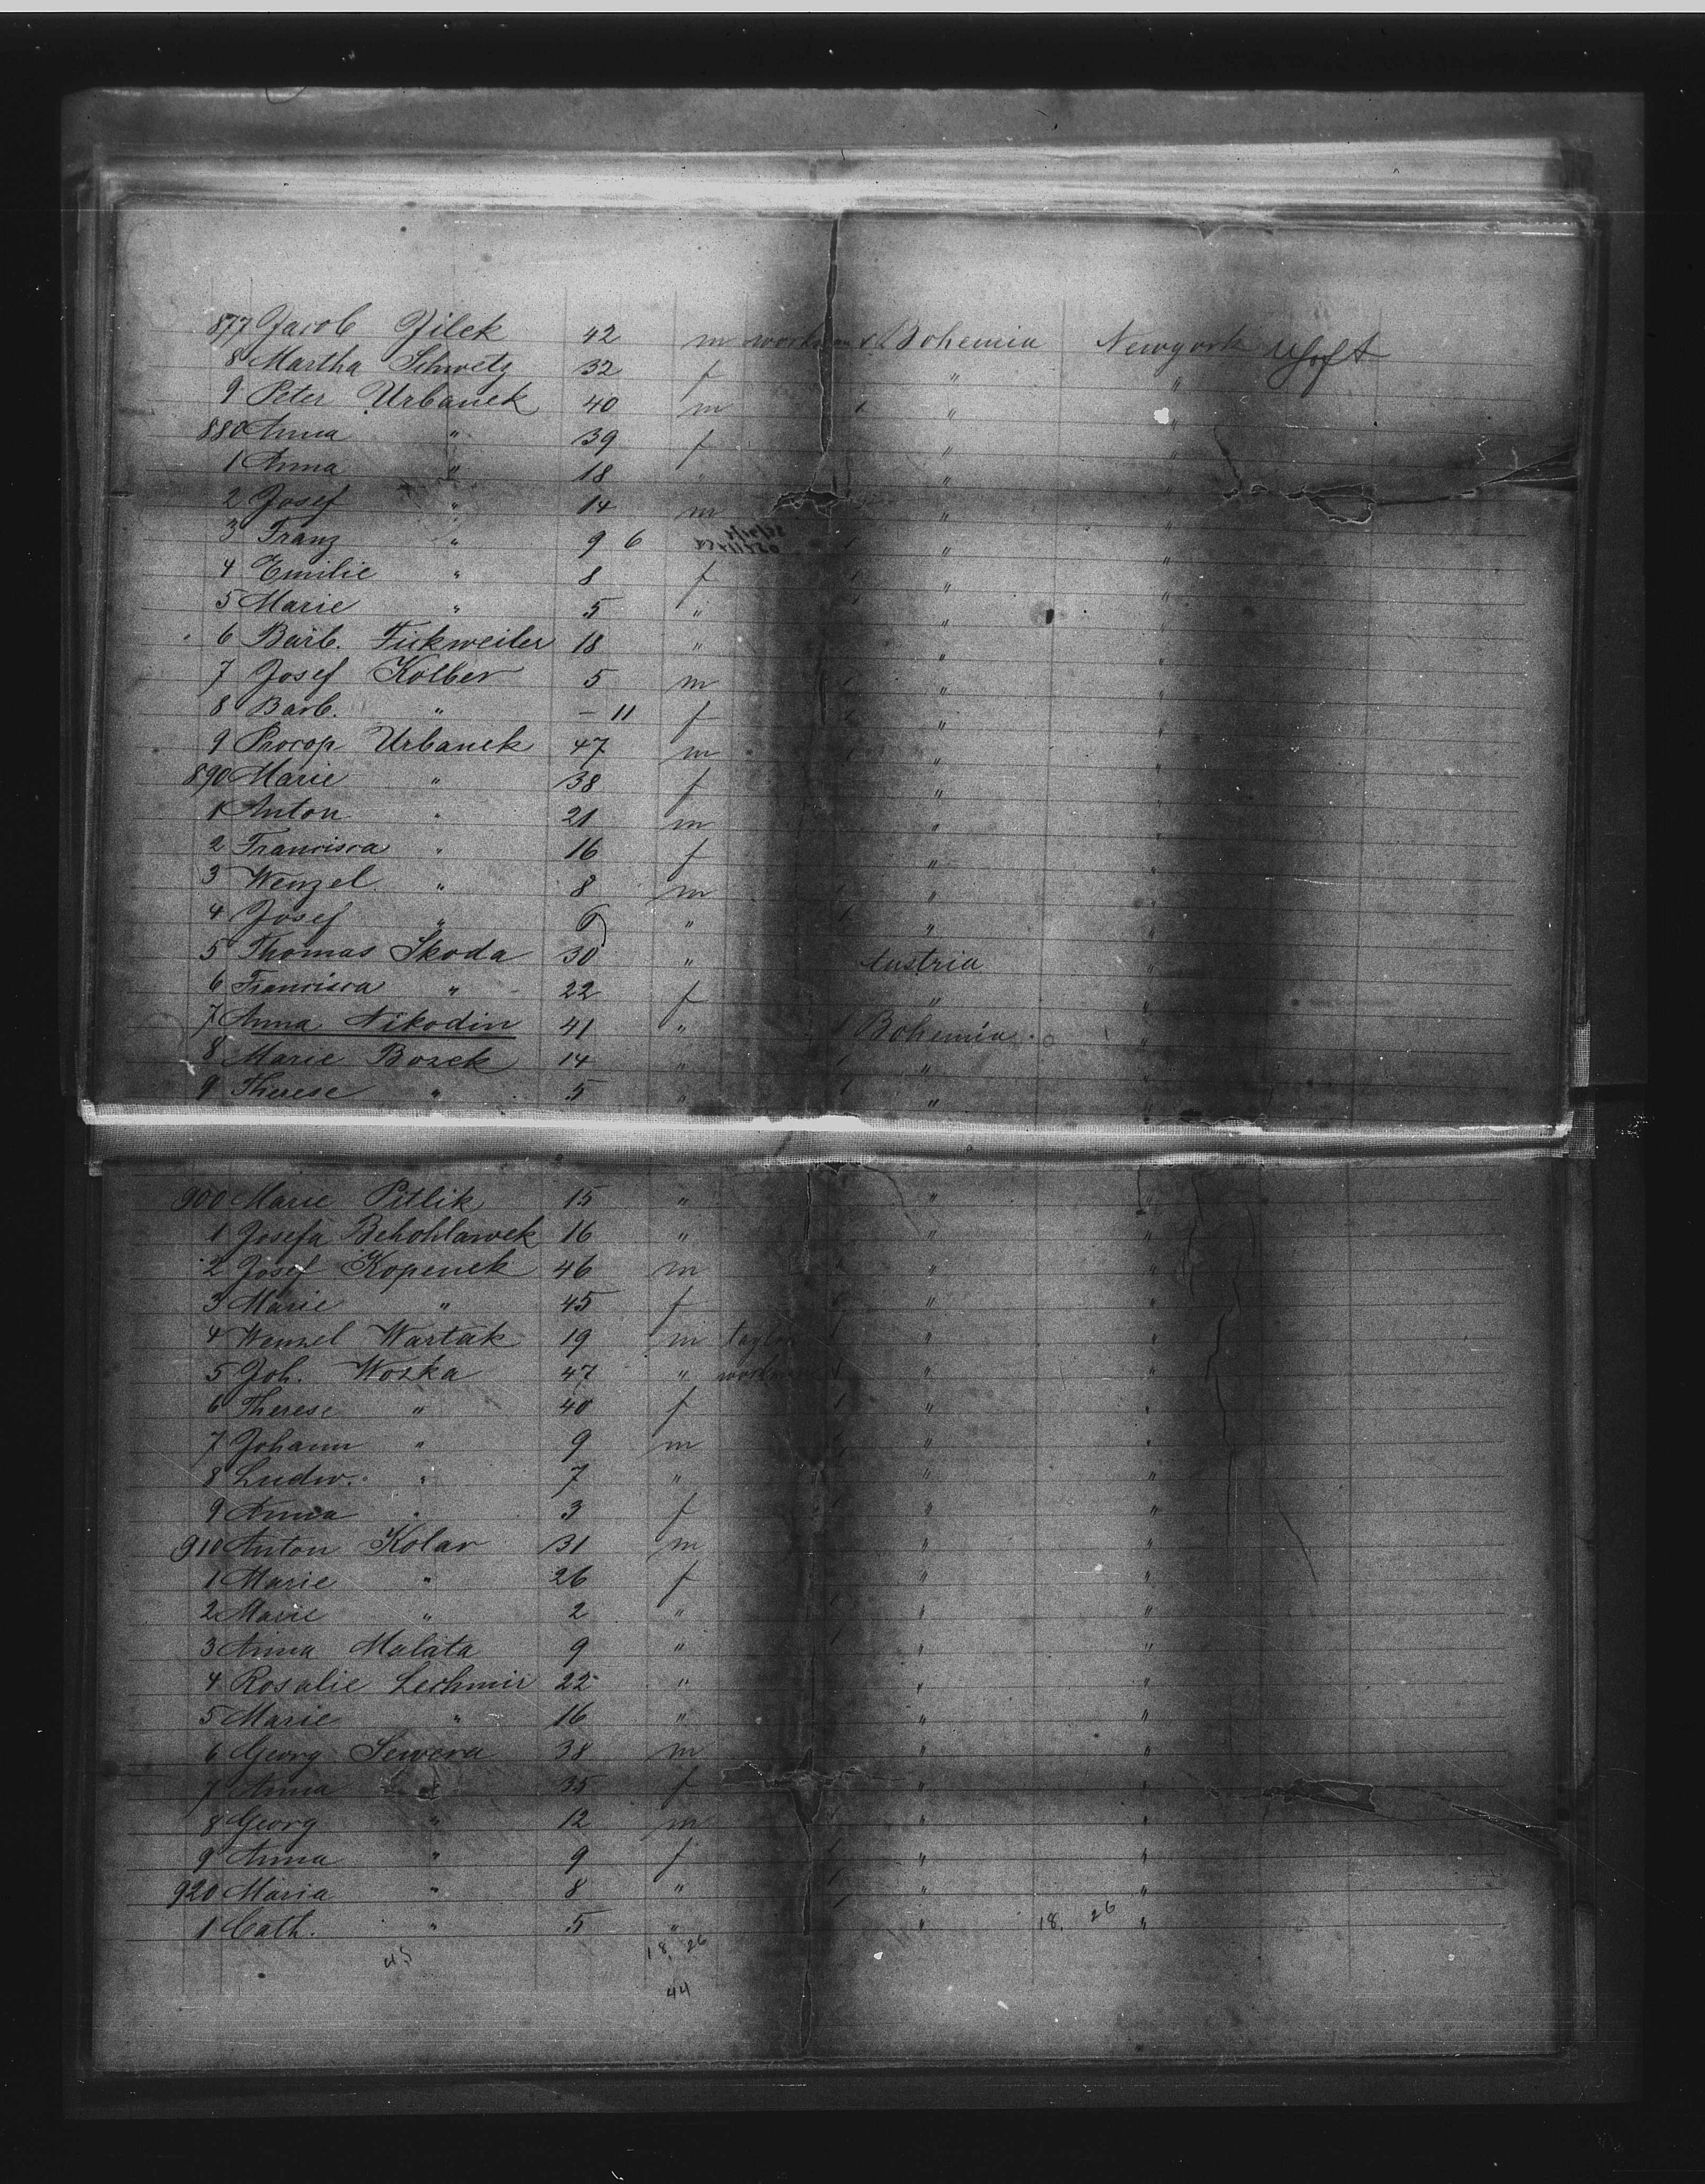 877 Jacob Jilek 42 m workman Bohemia Newyork
8 Martha Schwetz 32 f " "
9 Peter Urbanek 40 m " "
880 Anna " 39 f " "
1 Anna " 18 " " "
2 Josef " 14 m " "
3 Franz " 9 6 " "
4 Emilie " 8 f " "
5 Marie " 5 " " "
6 Barb. Fickweiler 18 " " "
7 Josef Kolber 5 m " "
8 Barb. " – 11 f " "
9 Procop Urbanek 47 m " "
890 Marie " 38 f " "
1 Anton " 21 m " "
2 Francisca " 16 f " "
3 Wenzel " 8 m " "
4 Josef " 6 " " "
5 Thomas Skoda 30 " Austria "
6 Francisca " 22 f " "
7 Anna Nikodin 41 " Bohemia "
8 Marie Bozek 14 " " "
9 Therese " 5 " " "
900 Marie Pitlik 15 " " "
1 Josefa Behohlawek 16 " " "
2 Josef Kopenek 46 m " "
3 Marie " 45 f " "
4 Wenzel Wartak 19 m taylor " "
5 Joh. Woska 47 " workman " "
6 Therese " 40 f " "
7 Johann " 9 m " "
8 Ludw. " 7 " " "
9 Anna " 3 f " "
910 Anton Kolar 31 m " "
1 Marie " 26 f " "
2 Marie " 2 " " "
3 Anna Malata 9 " " "
4 Rosalie Lechmir 22 " " "
5 Marie " 16 " " "
6 Georg Sewera 38 m " "
7 Anna " 35 f " "
8 Georg " 12 m " "
9 Anna " 9 f " "
920 Maria " 8 " " "
1 Cath. " 5 " " 18. 26 "
45 18. 26
44